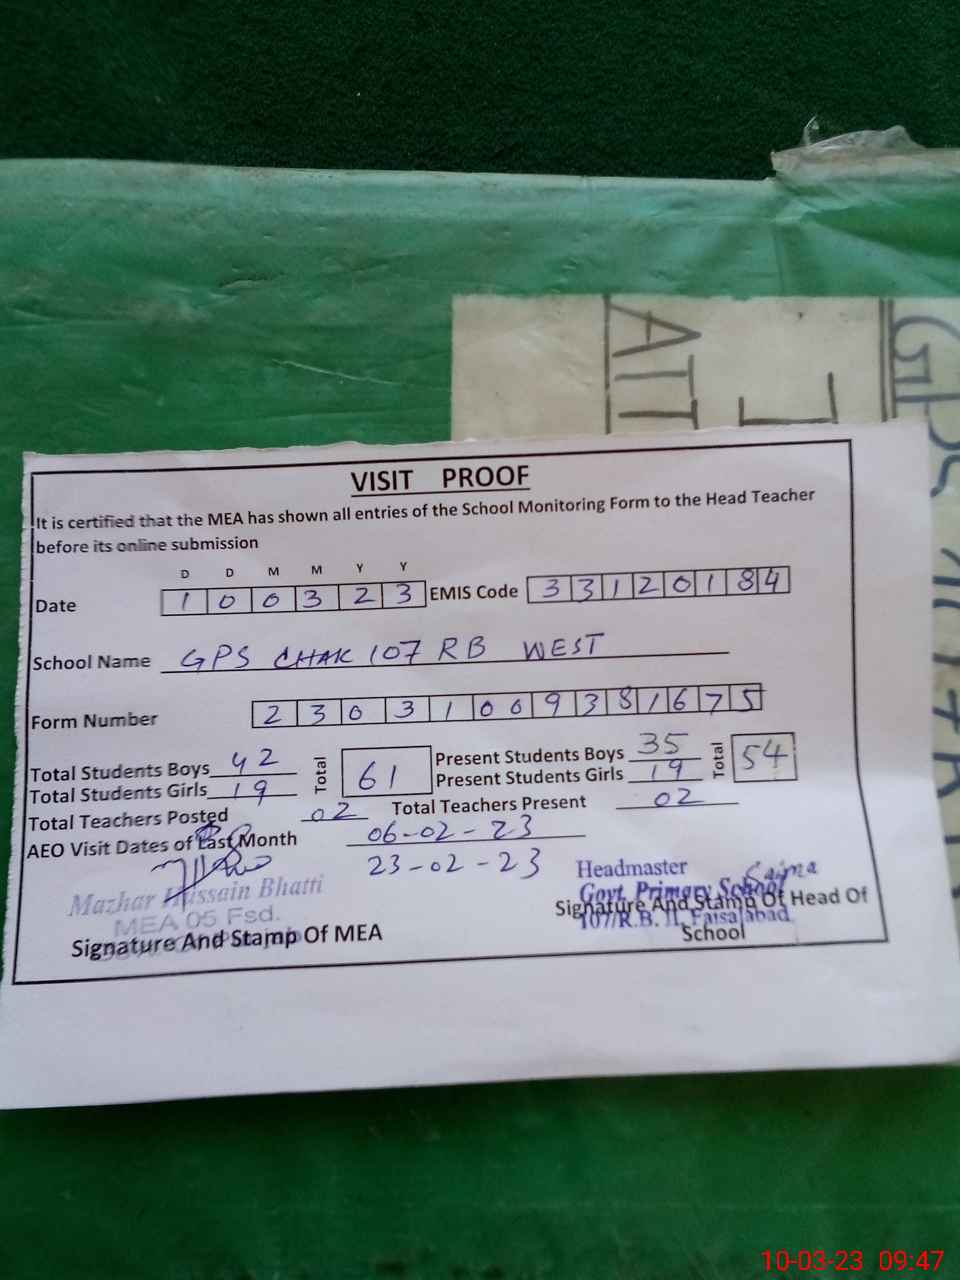 ATT
GPS
VISIT PROOF
It is certified that the MEA has shown all entries of the School Monitoring Form to the Head Teacher
before its online submission
D D M M Y Y
Date 1 0 0 3 2 3 EMIS Code 3 3 1 2 0 1 8 4
School Name GPS CHAK 107 RB WEST
Form Number 2 3 0 3 1 0 0 9 3 8 1 6 7 5
Total Students Boys 42 Total 61 Present Students Boys 35 Total 54
Total Students Girls 19 Present Students Girls 19
Total Teachers Posted 02 Total Teachers Present 02
AEO Visit Dates of Last Month 06-02-23
23-02-23
Mazhar Hussain Bhatti
MEA 05 Fsd.
Signature And Stamp Of MEA
Saima
Headmaster
Govt. Primary School
107/R.B. II, Faisalabad.
Signature And Stamp Of Head Of
School
10-03-23 09:47